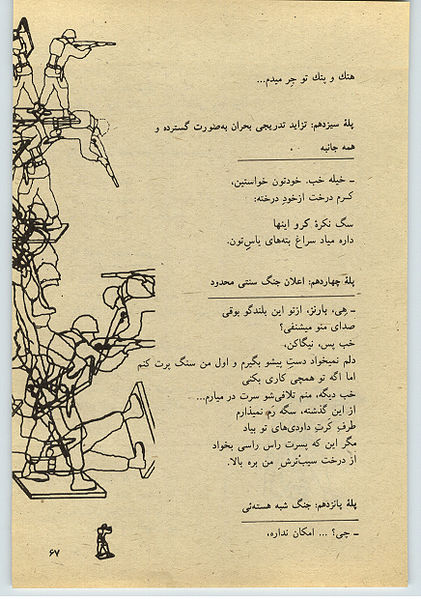 هنك و پنك تو جر ميدم...
پلهٔ سیزدهم: تزاید تدریجی بحران به‌صورت گسترده و
همه جانبه
ـ خیله خب. خودتون خواستین،
کرم درخت ازخودِ درخته:
سگ نکرهٔ کرو اینها
داره میاد سراغ بته‌های یاس‌تون.
پلهٔ چهاردهم: اعلان جنگ سنتی محدود
ـ هی، بارنز، ازتو این بلندگو بوقی
صدای منو میشنفی؟
خب پس، نیگاکن،
دلم نمیخواد دستِ پیشو بگیرم و اول من سنگ پرت کنم
اما اگه تو همچی کاری بکنی
خب دیگه، منم تلافی‌شو سرت در میارم...
از این گذشته، سگه رَم نمیذارم
طرفِ کَرتِ داودی‌های تو بیاد
مگر این که پسرت راس راسی بخواد
از درخت سیب‌ترش من بره بالا.
پلهٔ پانزدهم: جنگ شبه هسته‌ئی
ـ چی؟ ... امکان نداره،
۶۷